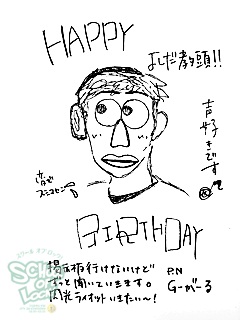 HAPPY
よしだ教頭!!
声好きです
BIRTHDAY
掲示板行けないけど
ずっと聞いていきます。
閃光ライオットいきたい〜!
P.N
G-がーる
SCHOOL OF LOCK!